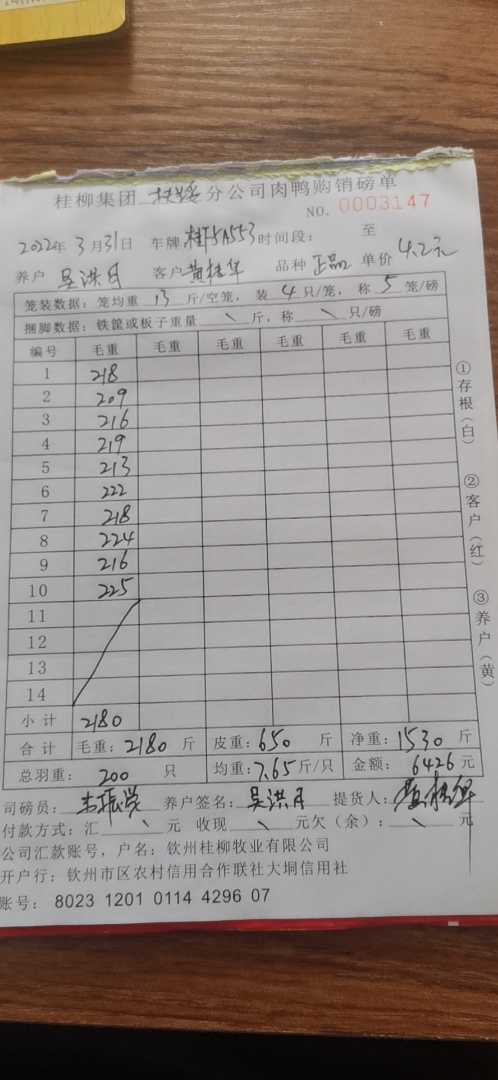 桂柳集团 分公司肉鸭购销磅单
NO. 0003147
2022年 3月31日 车牌 桂 553 时间段： 至
养户 吴洪月 客户 黄桂华 品种 正品 单价 4.2元
笼装数据：笼均重 13 斤/空笼，装 4 只/笼，称 5 笼/磅
捆脚数据：铁筐或板子重量 \ 斤，称 \ 只/磅
编号 毛重 毛重 毛重 毛重 毛重 毛重
1 218
2 209
3 216
4 219
5 213
6 222
7 218
8 224
9 216
10 225
11
12
13
14
小计 2180
合计 毛重：2180 斤 皮重：650 斤 净重：1530 斤
总羽重： 200 只 均重：7.65 斤/只 金额： 6426 元
司磅员： 养户签名：吴洪月 提货人：黄桂华
付款方式：汇 \ 元 收现 \ 元欠（余）： \ 元
公司汇款账号，户名：钦州桂柳牧业有限公司
开户行：钦州市区农村信用合作联社大垌信用社
账号： 8023 1201 0114 4296 07
①存根（白）
②客户（红）
③养户（黄）